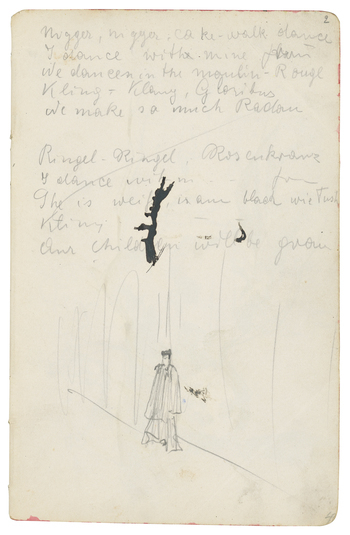 2
Nigger, nigger, cake-walk dance
I dance with mine frau
We dancen in the moulin-Rouge
Kling - Klang, Gloribus
We make so much Radau
Ringel-Ringel, Rosenkranz
I dance with
She is weiss, am black wie Tusch
Kling
Our children will be grau